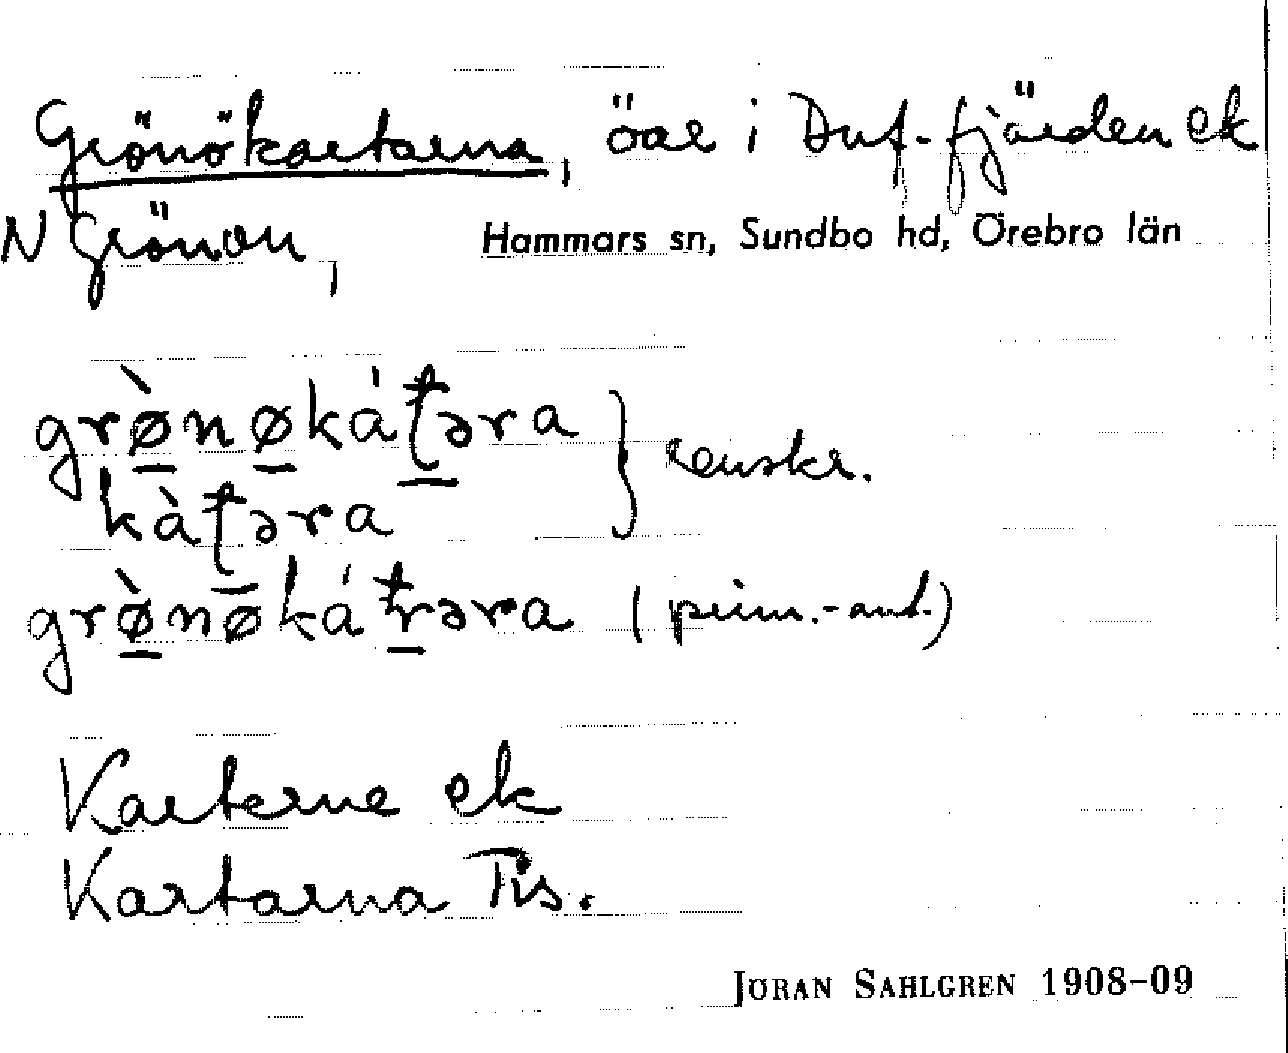 Grönökartarna, öar i Duf-fjärden ek
N Grönön, Hammars sn, Sundbo hd, Örebro län
grø̀nøkáʈəra } renskr.
kàʈəra
grø̀nøkátrəra (prim.-ant.)
Karterne ek
Kartarna Tis.
JÖRAN SAHLGREN 1908-09